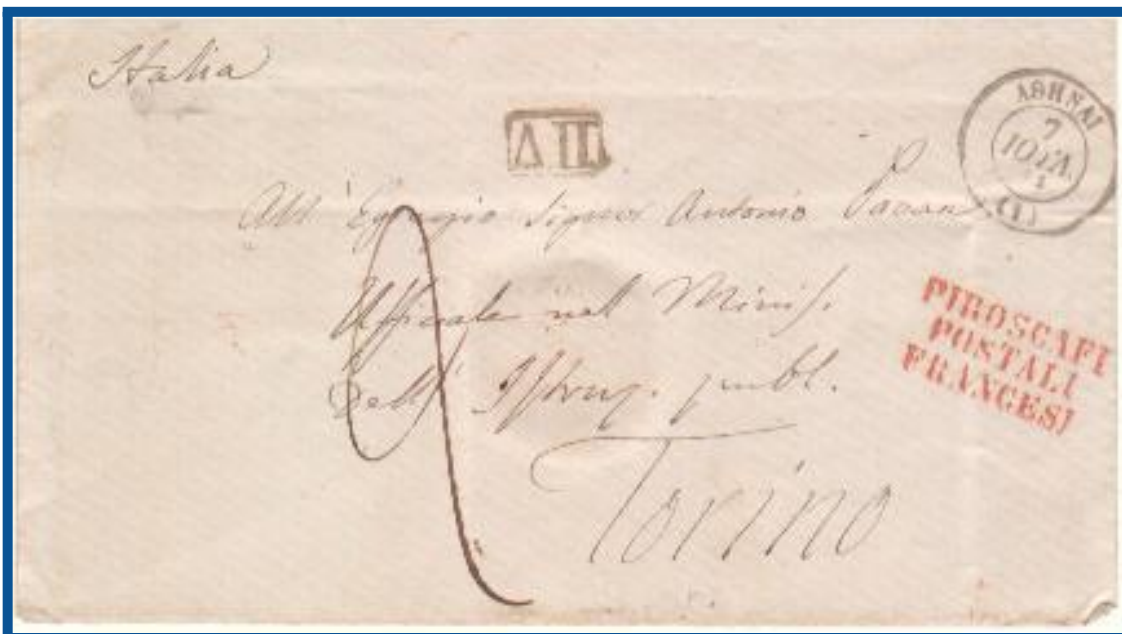 Italia
ΔΠ
ΑΘΗΝΑΙ
7
ΙΟΥΛ.
(1)
All' Egregio Signor Antonio
Uffiziale nel Minis.
dell' Istruz. pubbl.
Torino
PIROSCAFI
POSTALI
FRANCESI